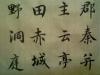 郡秦并
主云亭
田赤城
野洞庭